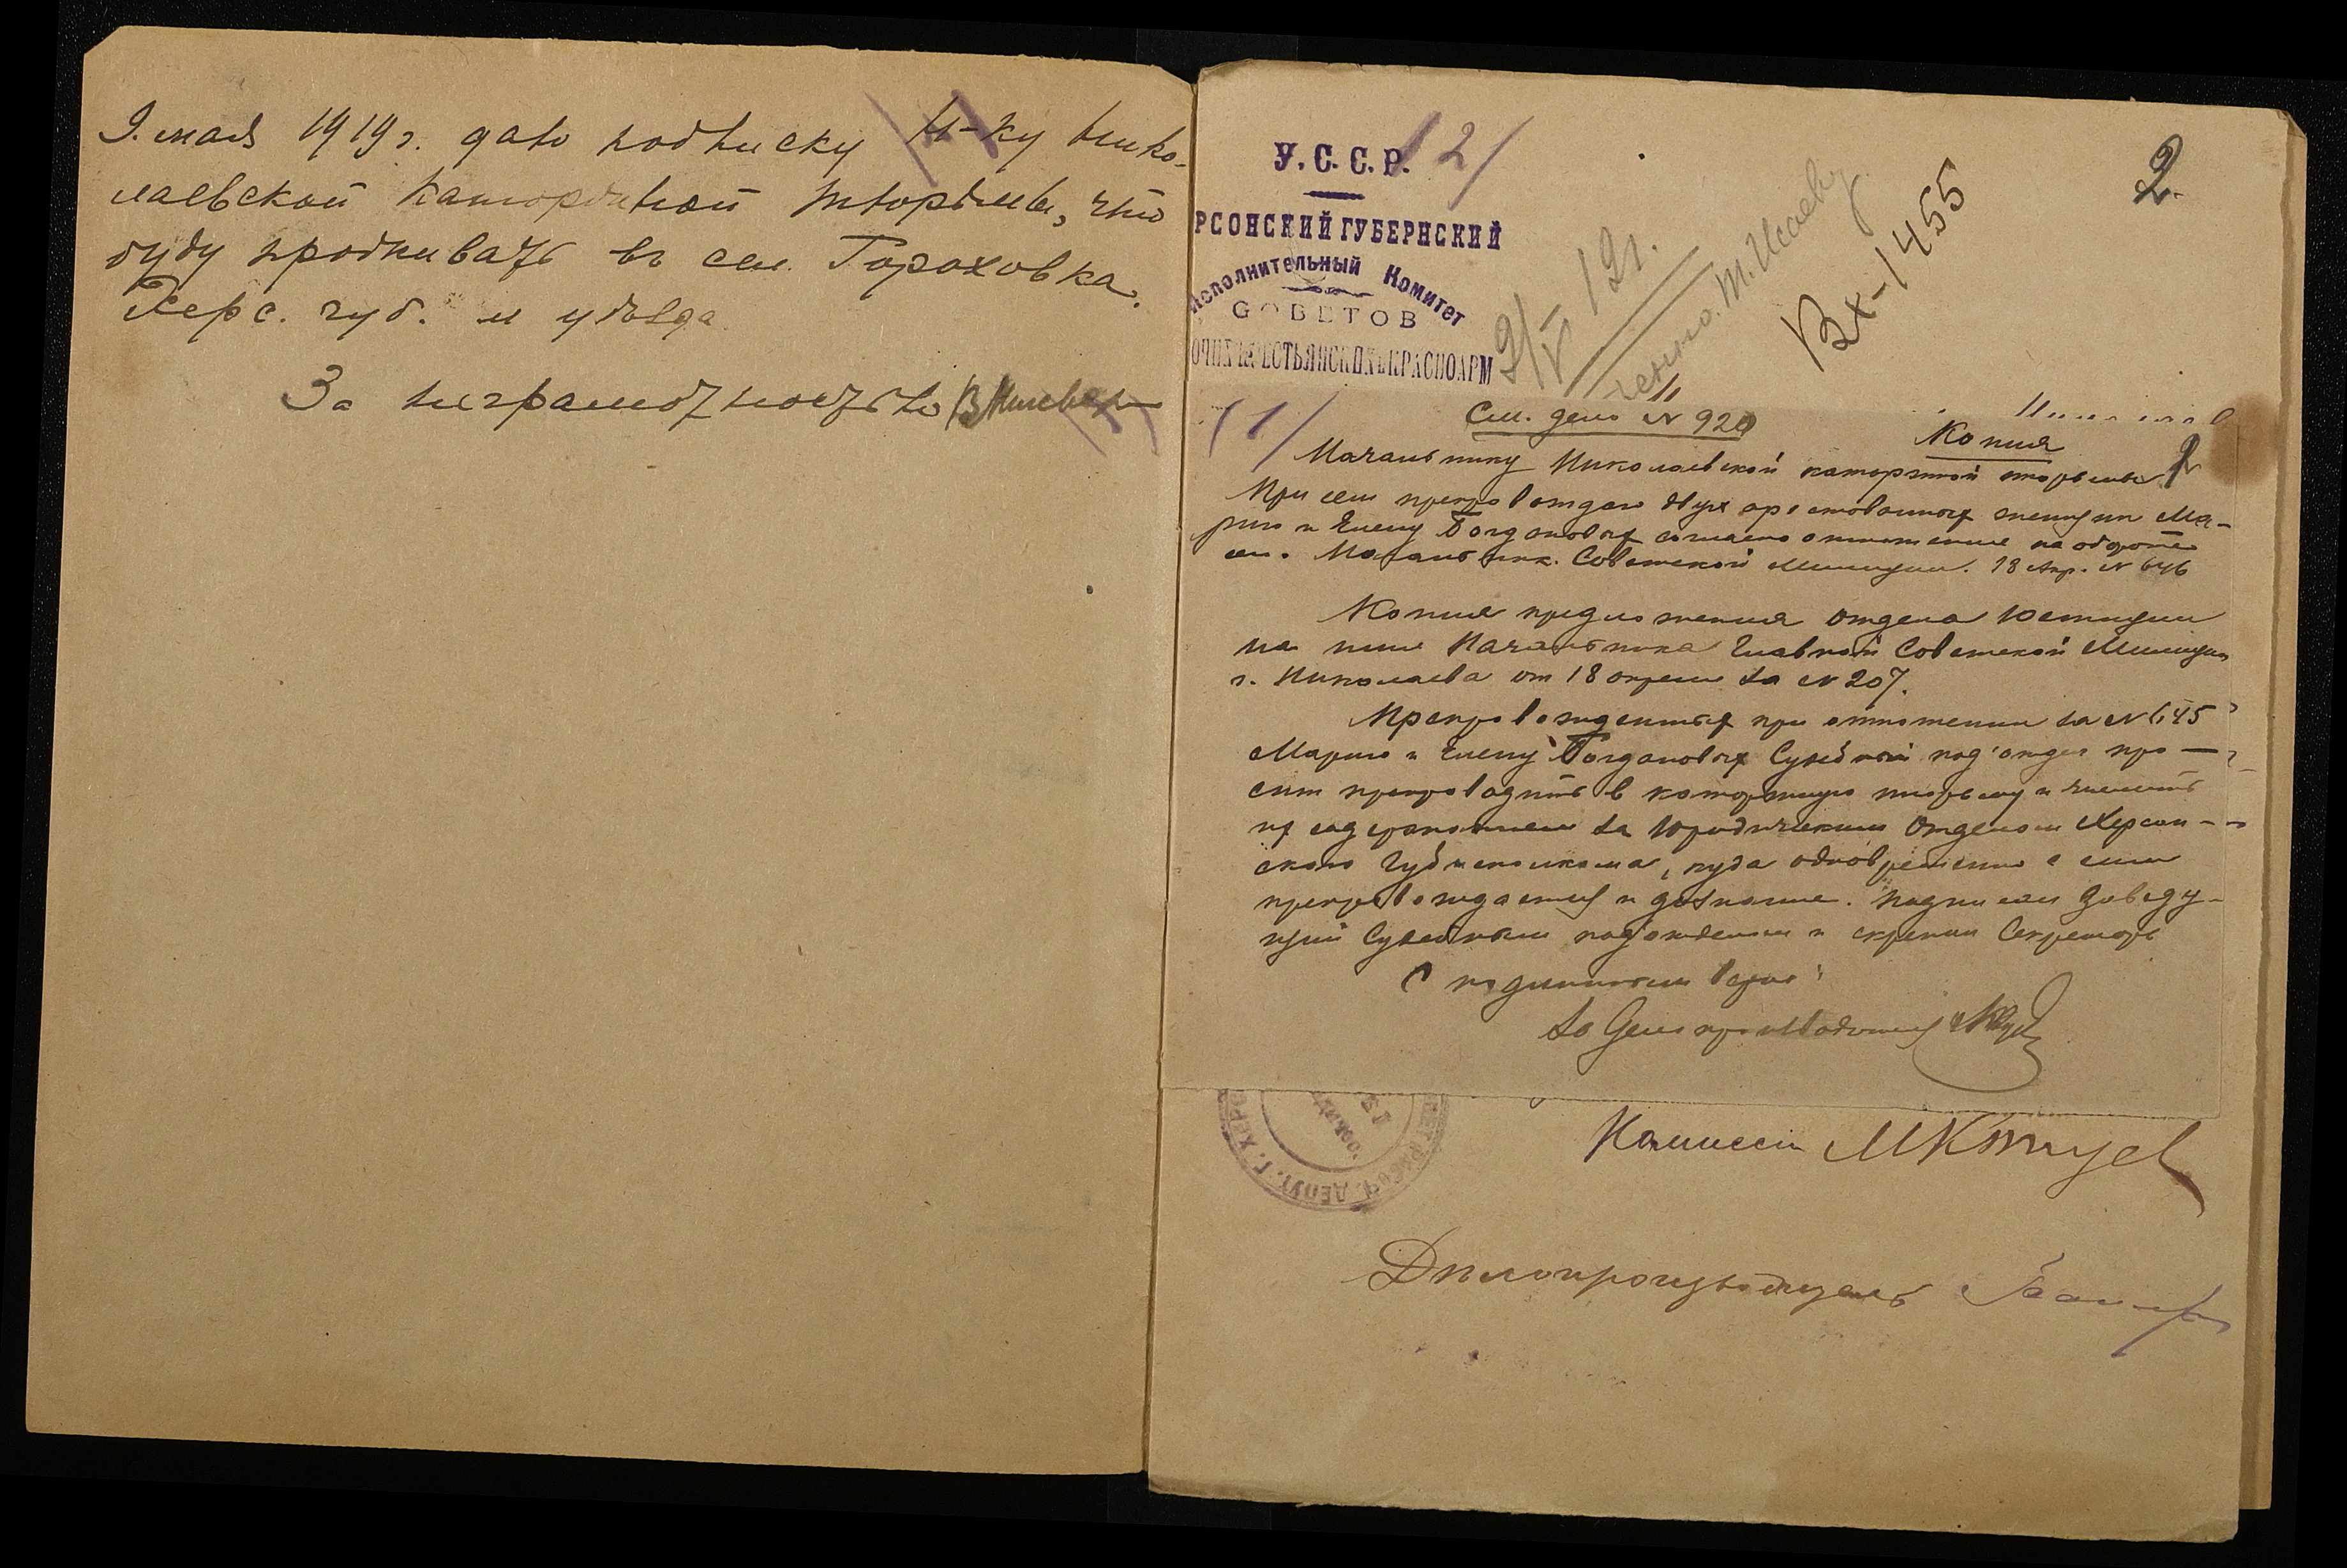 9. мая 1919 г. даю подписку Н-ку Нико-
лаевской Каторжной тюрьмы, что
буду проживать въ сел. Гороховка.
Херс. губ. и уѣзда
За неграмотностью
2
У.С.С.Р.
РСОНСКИЙ ГУБЕРНСКИЙ
Исполнительный Комитет
СОВЕТОВ
ОЧИХ КРЕСТЬЯНСКИХ КРАСНОАРМ
2/
9/V 19г.
т. Исаеву
Вх-1455
(1/
См. дело № 920
Копия
2
Начальнику Николаевской каторжной тюрьмы
При сем препровождаю двух арестованных женщин Ма-
рию и Елену Богдановых согласно отношения на обороте
сем. Начальник. Советской Милиции. 18 Апр. № 646
Копия предложения отдела Юстиции
на имя Начальника Главной Советской Милиции
г. Николаева от 18 апреля за № 207.
Препровожденных при отношении за № 645
Марию и Елену Богдановых Судебный под'отдел про-
сит препроводить в каторжную тюрьму и числить
их содержанием за Юридическим Отделом Херсон-
ского Губисполкома, куда одновременно с сим
препровождается и дознание. Подписали Заведу-
ющий Судебным под'отделом и скрепил Секретарь
С подлинным верно:
За Делопроизводителя
ЕТ РАБОЧ. ДЕПУТ. Г. ХЕРС
Комиссар
Дѣлопроизводитель